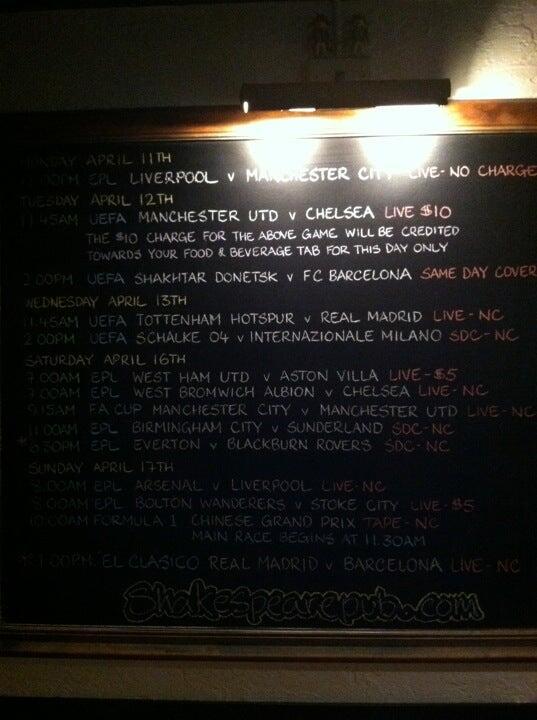 MONDAY APRIL 11TH
00PM EPL LIVERPOOL v MANCHESTER CITY LIVE-NO CHARGE
TUESDAY APRIL 12TH
11.45AM UEFA MANCHESTER UTD v CHELSEA LIVE $10
THE $10 CHARGE FOR THE ABOVE GAME WILL BE CREDITED
TOWARDS YOUR FOOD & BEVERAGE TAB FOR THIS DAY ONLY
2.00PM UEFA SHAKHTAR DONETSK v FC BARCELONA SAME DAY COVER
WEDNESDAY APRIL 13TH
11.45AM UEFA TOTTENHAM HOTSPUR v REAL MADRID LIVE-NC
2.00PM UEFA SCHALKE 04 v INTERNAZIONALE MILANO SDC-NC
SATURDAY APRIL 16TH
7.00AM EPL WEST HAM UTD v ASTON VILLA LIVE-$5
EPL WEST BROMWICH ALBION v CHELSEA LIVE-NC
9.15AM FA CUP MANCHESTER CITY v MANCHESTER UTD LIVE-NC
11.00AM EPL BIRMINGHAM CITY v SUNDERLAND SDC-NC
*6.30PM EPL EVERTON v BLACKBURN ROVERS SDC-NC
SUNDAY APRIL 17TH
8.00AM EPL ARSENAL v LIVERPOOL LIVE-NC
8.00AM EPL BOLTON WANDERERS v STOKE CITY LIVE-$5
10.00AM FORMULA 1 CHINESE GRAND PRIX TAPE-NC
MAIN RACE BEGINS AT 11.30AM
*1.00PM 'EL CLASICO REAL MADRID v BARCELONA LIVE-NC
Shakespearepub.com